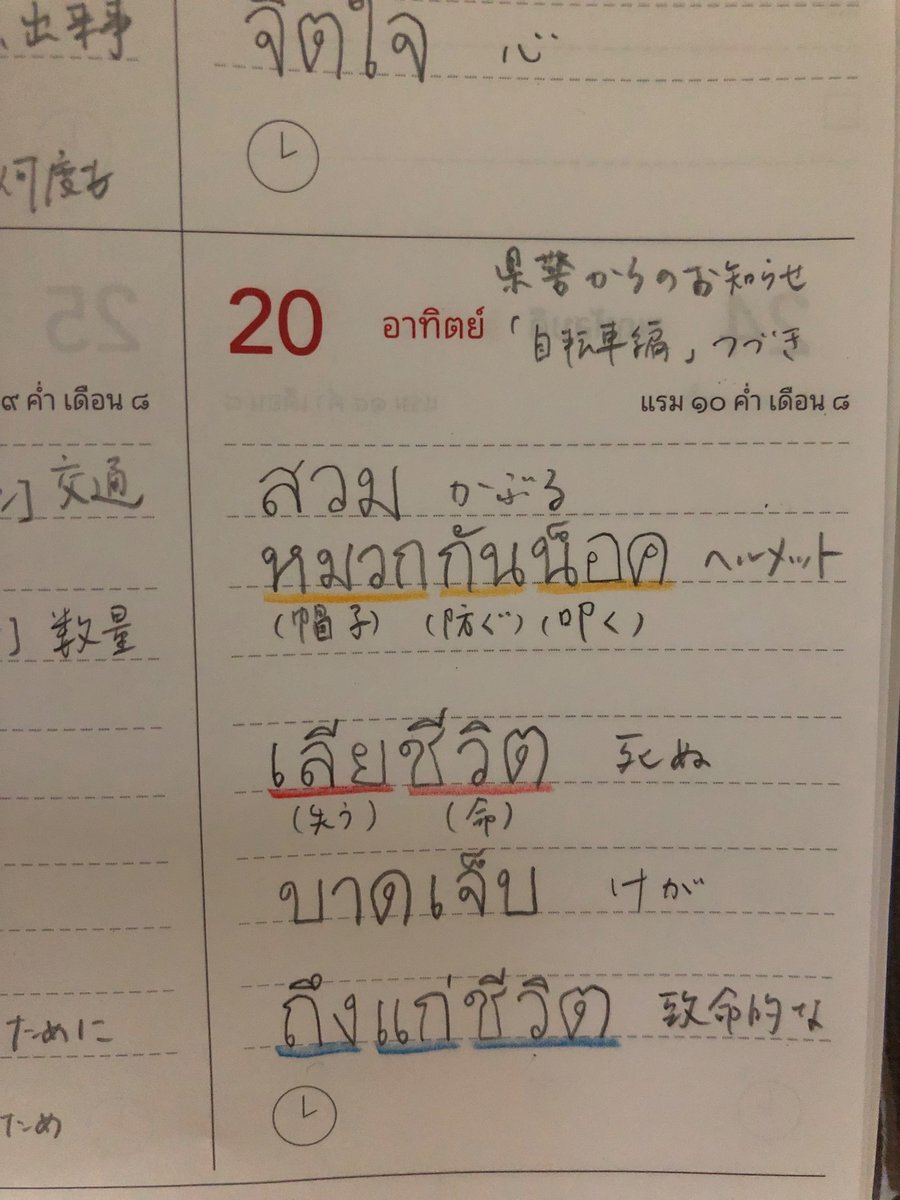 出来事
จิตใจ 心
何度も
20 อาทิตย์ 県警からのお知らせ
「自転車編」つづき
25
๙ ค่ำ เดือน ๘
แรม ๑๐ ค่ำ เดือน ๘
] 交通
สวม かぶる
หมวกกันน็อค ヘルメット
(帽子) (防ぐ) (叩く)
] 数量
เสียชีวิต 死ぬ
(失う) (命)
บาดเจ็บ けが
ถึงแก่ชีวิต 致命的な
ために
ため